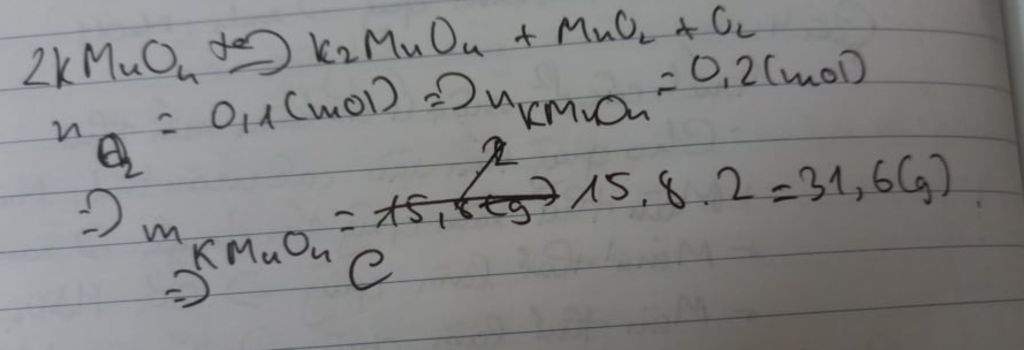 2KMnO4 t° => K2MnO4 + MnO2 + O2
nO2 = 0,1 (mol) => nKMnO4 = 0,2 (mol)
=> mKMnO4 = 15,8.2 = 31,6(g)
=> C